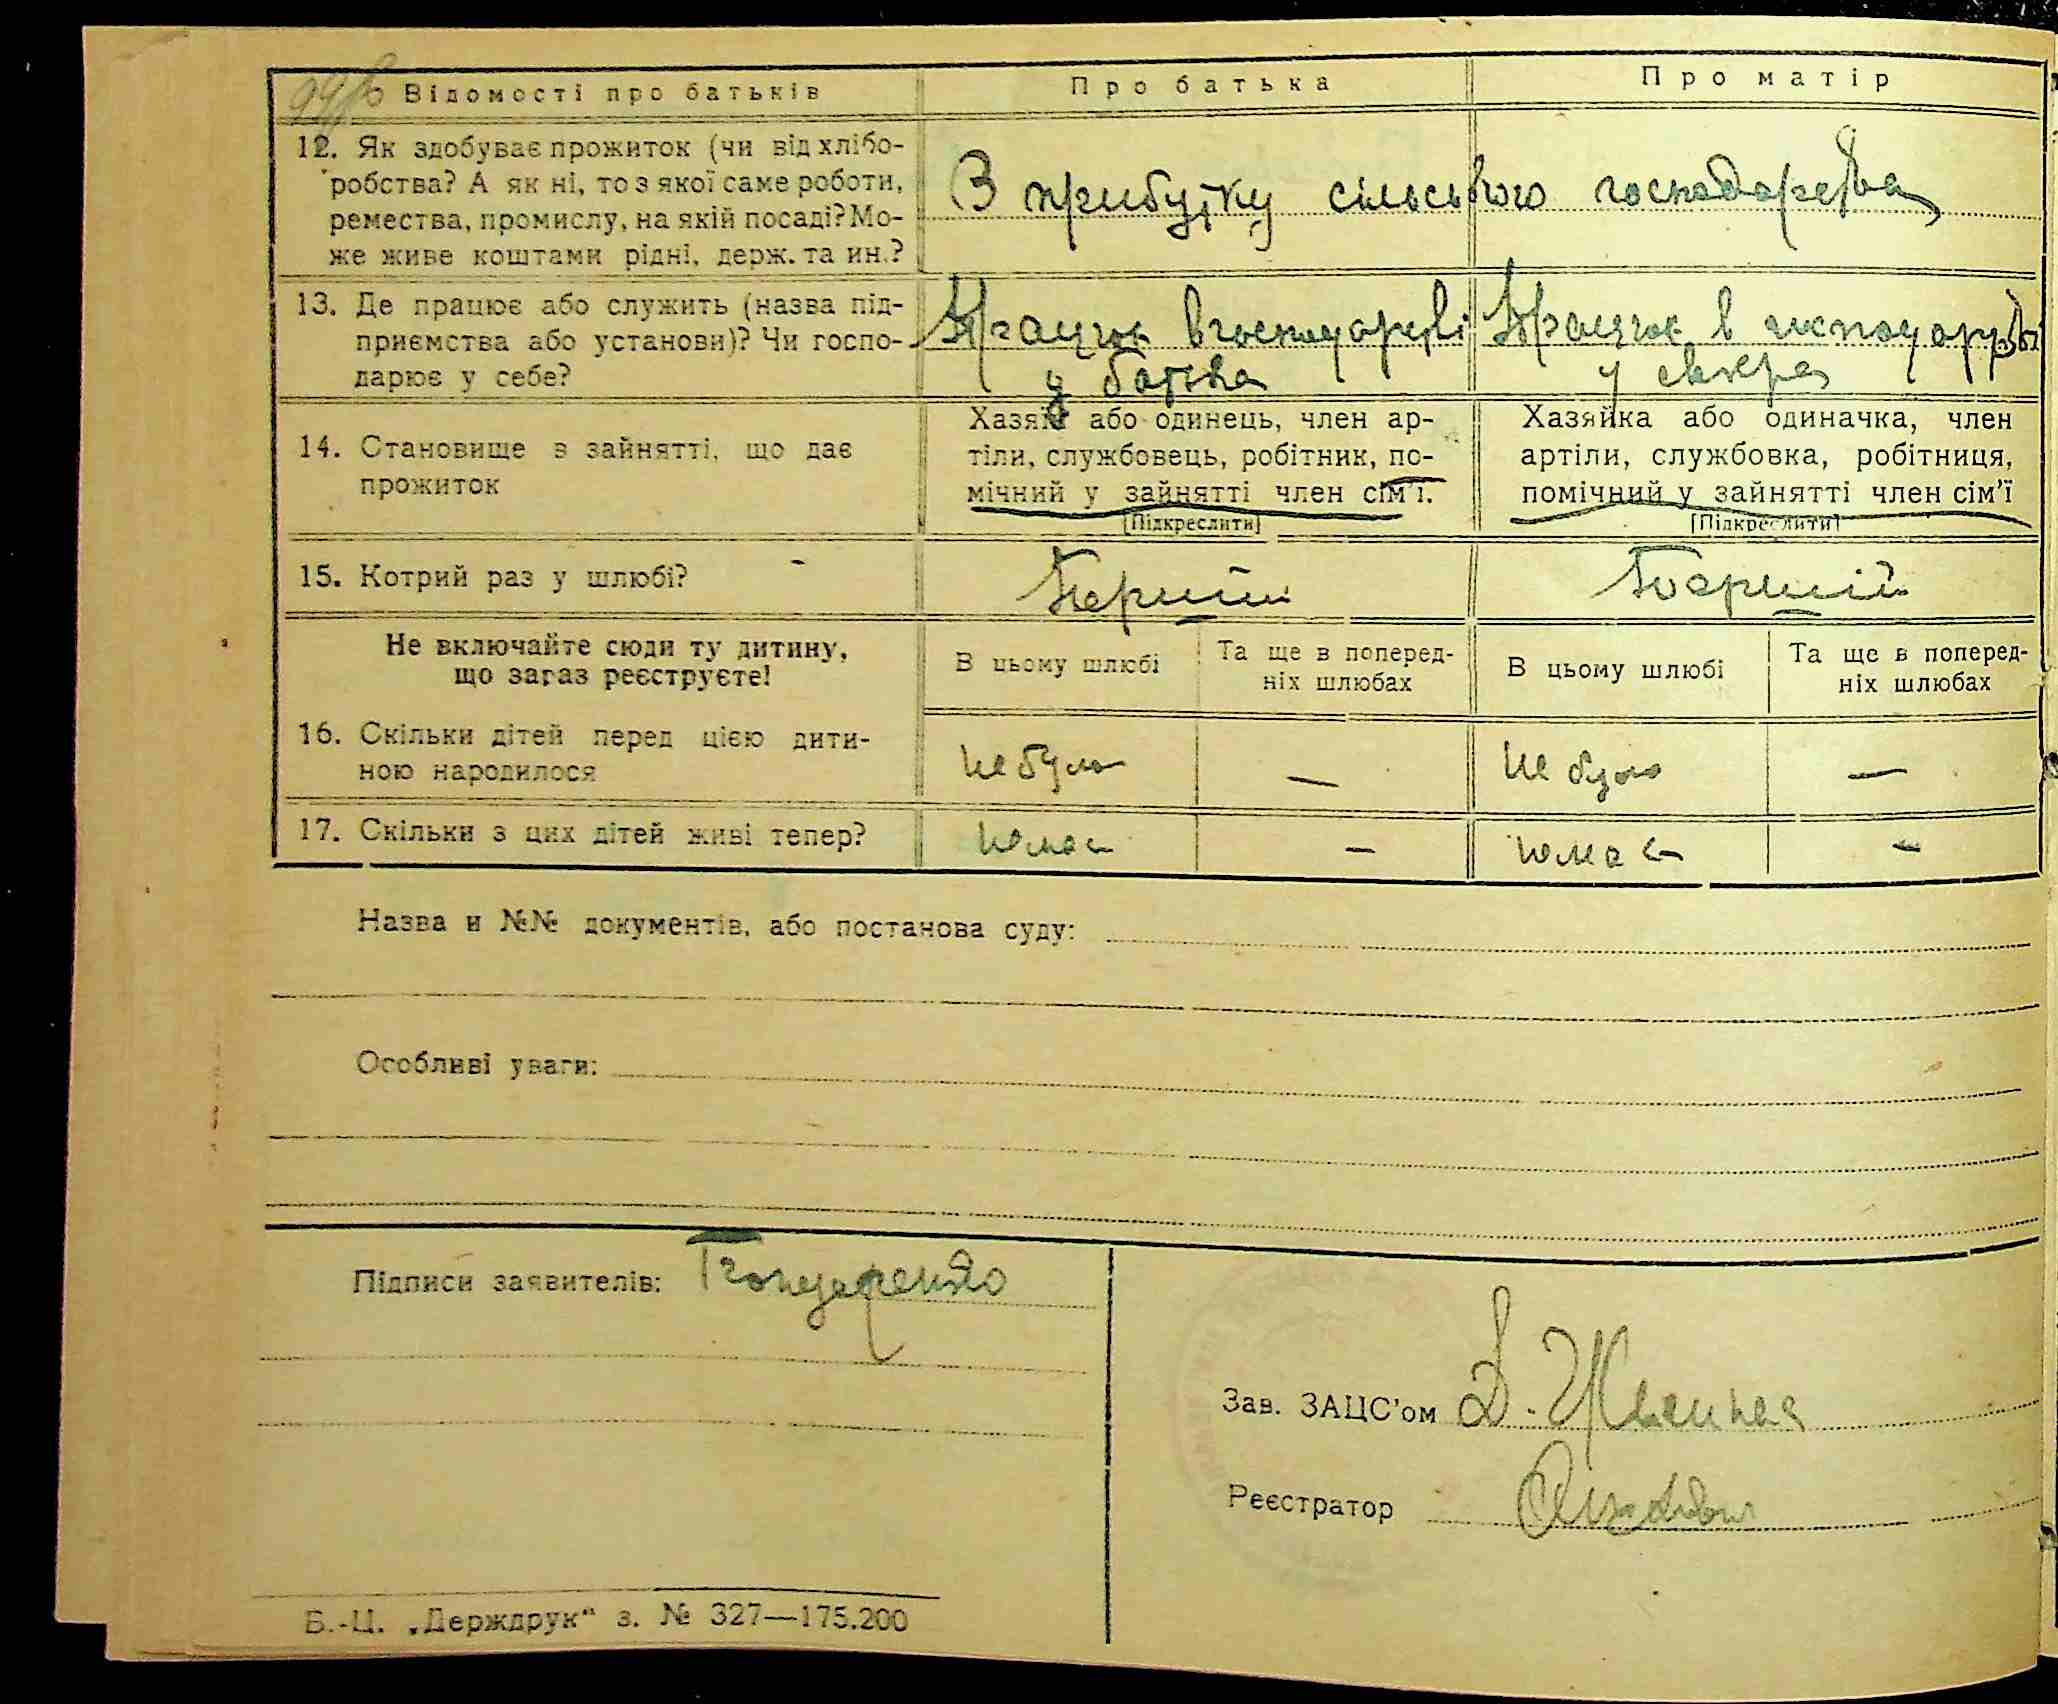 Відомості про батьків
Про батька
Про матір
12. Як здобуває прожиток (чи від хлібо-
робства? А як ні, то з якої саме роботи,
ремества, промислу, на якій посаді? Мо-
же живе коштами рідні, держ. та ин.?
З прибутку сільського господарства
13. Де працює або служить (назва під-
приємства або установи)? Чи госпо-
дарює у себе?
Працює в господарстві
у батька
Працює в господарстві
у свекра
14. Становище в зайнятті, що дає
прожиток
Хазяїн або одинець, член ар-
тіли, службовець, робітник, по-
мічний у зайнятті член сім'ї.
[Підкреслити]
Хазяйка або одиначка, член
артіли, службовка, робітниця,
помічний у зайнятті член сім'ї
[Підкреслити]
15. Котрий раз у шлюбі?
Перший
Перший
Не включайте сюди ту дитину,
що зараз реєструєте!
В цьому шлюбі
Та ще в поперед-
ніх шлюбах
В цьому шлюбі
Та ще в поперед-
ніх шлюбах
16. Скільки дітей перед цією дити-
ною народилося
не було
—
не було
—
17. Скільки з цих дітей живі тепер?
немає
—
немає
—
Назва и №№ документів, або постанова суду:
Особливі уваги:
Підписи заявителів: Гончаренко
Зав. ЗАЦС'ом Д.
Реєстратор
Б.-Ц. „Держдрук" з. № 327—175.200